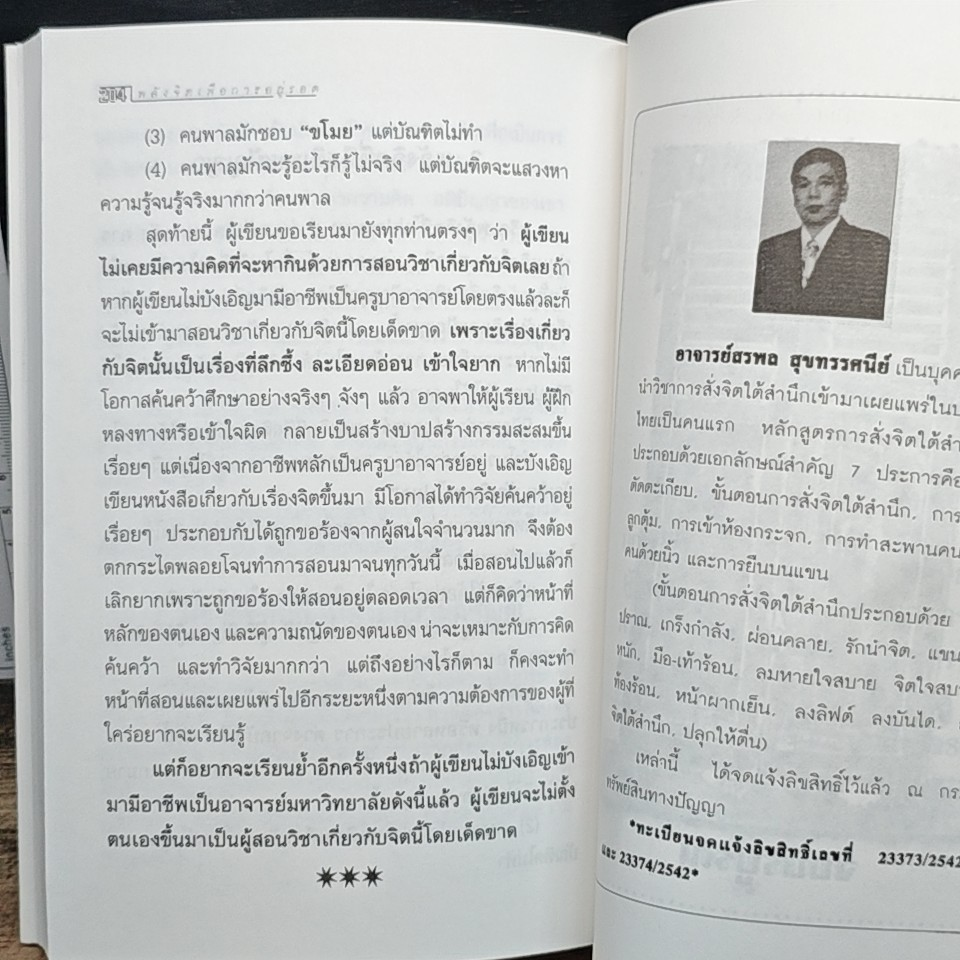 214 พลังจิตเพื่อการอยู่รอด
(3) คนพาลมักชอบ “ขโมย” แต่บัณฑิตไม่ทำ
(4) คนพาลมักจะรู้อะไรก็รู้ไม่จริง แต่บัณฑิตจะแสวงหา
ความรู้จนรู้จริงมากกว่าคนพาล
สุดท้ายนี้ ผู้เขียนขอเรียนมายังทุกท่านตรงๆ ว่า ผู้เขียน
ไม่เคยมีความคิดที่จะหากินด้วยการสอนวิชาเกี่ยวกับจิตเลย ถ้า
หากผู้เขียนไม่บังเอิญมามีอาชีพเป็นครูบาอาจารย์โดยตรงแล้วละก็
จะไม่เข้ามาสอนวิชาเกี่ยวกับจิตนี้โดยเด็ดขาด เพราะเรื่องเกี่ยว
กับจิตนั้นเป็นเรื่องที่ลึกซึ้ง ละเอียดอ่อน เข้าใจยาก หากไม่มี
โอกาสค้นคว้าศึกษาอย่างจริงๆ จังๆ แล้ว อาจพาให้ผู้เรียน ผู้ฝึก
หลงทางหรือเข้าใจผิด กลายเป็นสร้างบาปสร้างกรรมสะสมขึ้น
เรื่อยๆ แต่เนื่องจากอาชีพหลักเป็นครูบาอาจารย์อยู่ และบังเอิญ
เขียนหนังสือเกี่ยวกับเรื่องจิตขึ้นมา มีโอกาสได้ทำวิจัยค้นคว้าอยู่
เรื่อยๆ ประกอบกับได้ถูกขอร้องจากผู้สนใจจำนวนมาก จึงต้อง
ตกกระไดพลอยโจนทำการสอนมาจนทุกวันนี้ เมื่อสอนไปแล้วก็
เลิกยากเพราะถูกขอร้องให้สอนอยู่ตลอดเวลา แต่ก็คิดว่าหน้าที่
หลักของตนเอง และความถนัดของตนเอง น่าจะเหมาะกับการคิด
ค้นคว้า และทำวิจัยมากกว่า แต่ถึงอย่างไรก็ตาม ก็คงจะทำ
หน้าที่สอนและเผยแพร่ไปอีกระยะหนึ่งตามความต้องการของผู้ที่
ใคร่อยากจะเรียนรู้
แต่ก็อยากจะเรียนย้ำอีกครั้งหนึ่งถ้าผู้เขียนไม่บังเอิญเข้า
มามีอาชีพเป็นอาจารย์มหาวิทยาลัยดังนี้แล้ว ผู้เขียนจะไม่ตั้ง
ตนเองขึ้นมาเป็นผู้สอนวิชาเกี่ยวกับจิตนี้โดยเด็ดขาด
อาจารย์สรพล สุขทรรศนีย์ เป็นบุคค
นำวิชาการสั่งจิตใต้สำนึกเข้ามาเผยแพร่ในป
ไทยเป็นคนแรก หลักสูตรการสั่งจิตใต้สำ
ประกอบด้วยเอกลักษณ์สำคัญ 7 ประการคือ
ตัดตะเกียบ, ขั้นตอนการสั่งจิตใต้สำนึก, การ
ลูกตุ้ม, การเข้าห้องกระจก, การทำสะพานคน
คนด้วยนิ้ว และการยืนบนแขน
(ขั้นตอนการสั่งจิตใต้สำนึกประกอบด้วย
ปราณ, เกร็งกำลัง, ผ่อนคลาย, รักนำจิต, แขน
หนัก, มือ-เท้าร้อน, ลมหายใจสบาย จิตใจสบ
ท้องร้อน, หน้าผากเย็น, ลงลิฟต์ ลงบันได,
จิตใต้สำนึก, ปลุกให้ตื่น)
เหล่านี้ ได้จดแจ้งลิขสิทธิ์ไว้แล้ว ณ กร
ทรัพย์สินทางปัญญา
*ทะเบียนจดแจ้งลิขสิทธิ์เลขที่ 23373/2542
และ 23374/2542*
inches